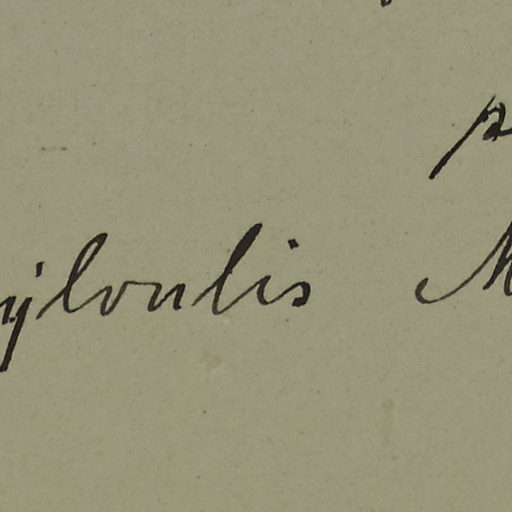 p
ÿloulis M